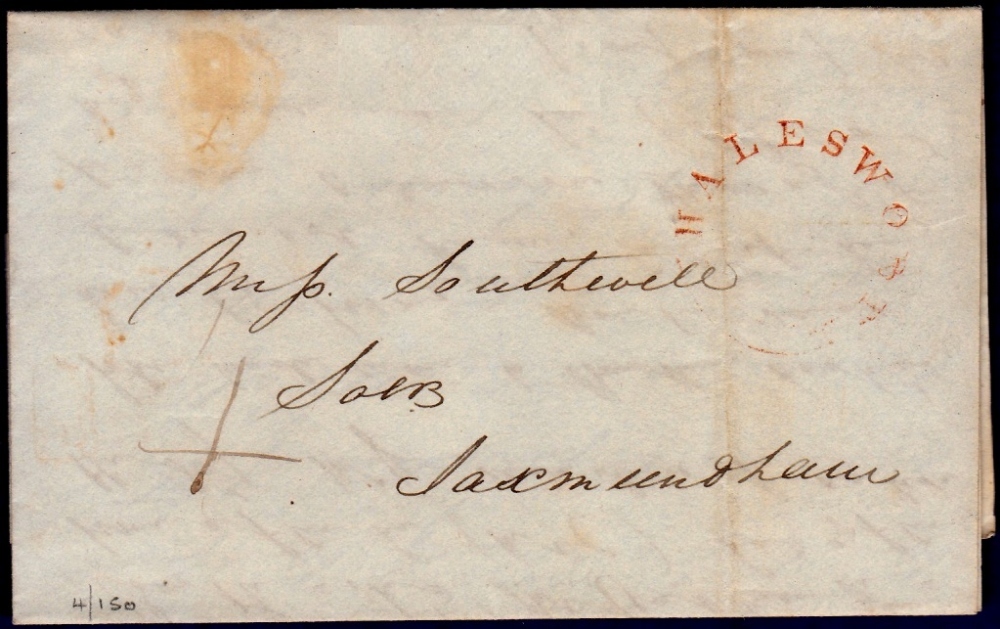 HALESWORT
Mrss. Southwell
Solrs
Saxmundham
4/150